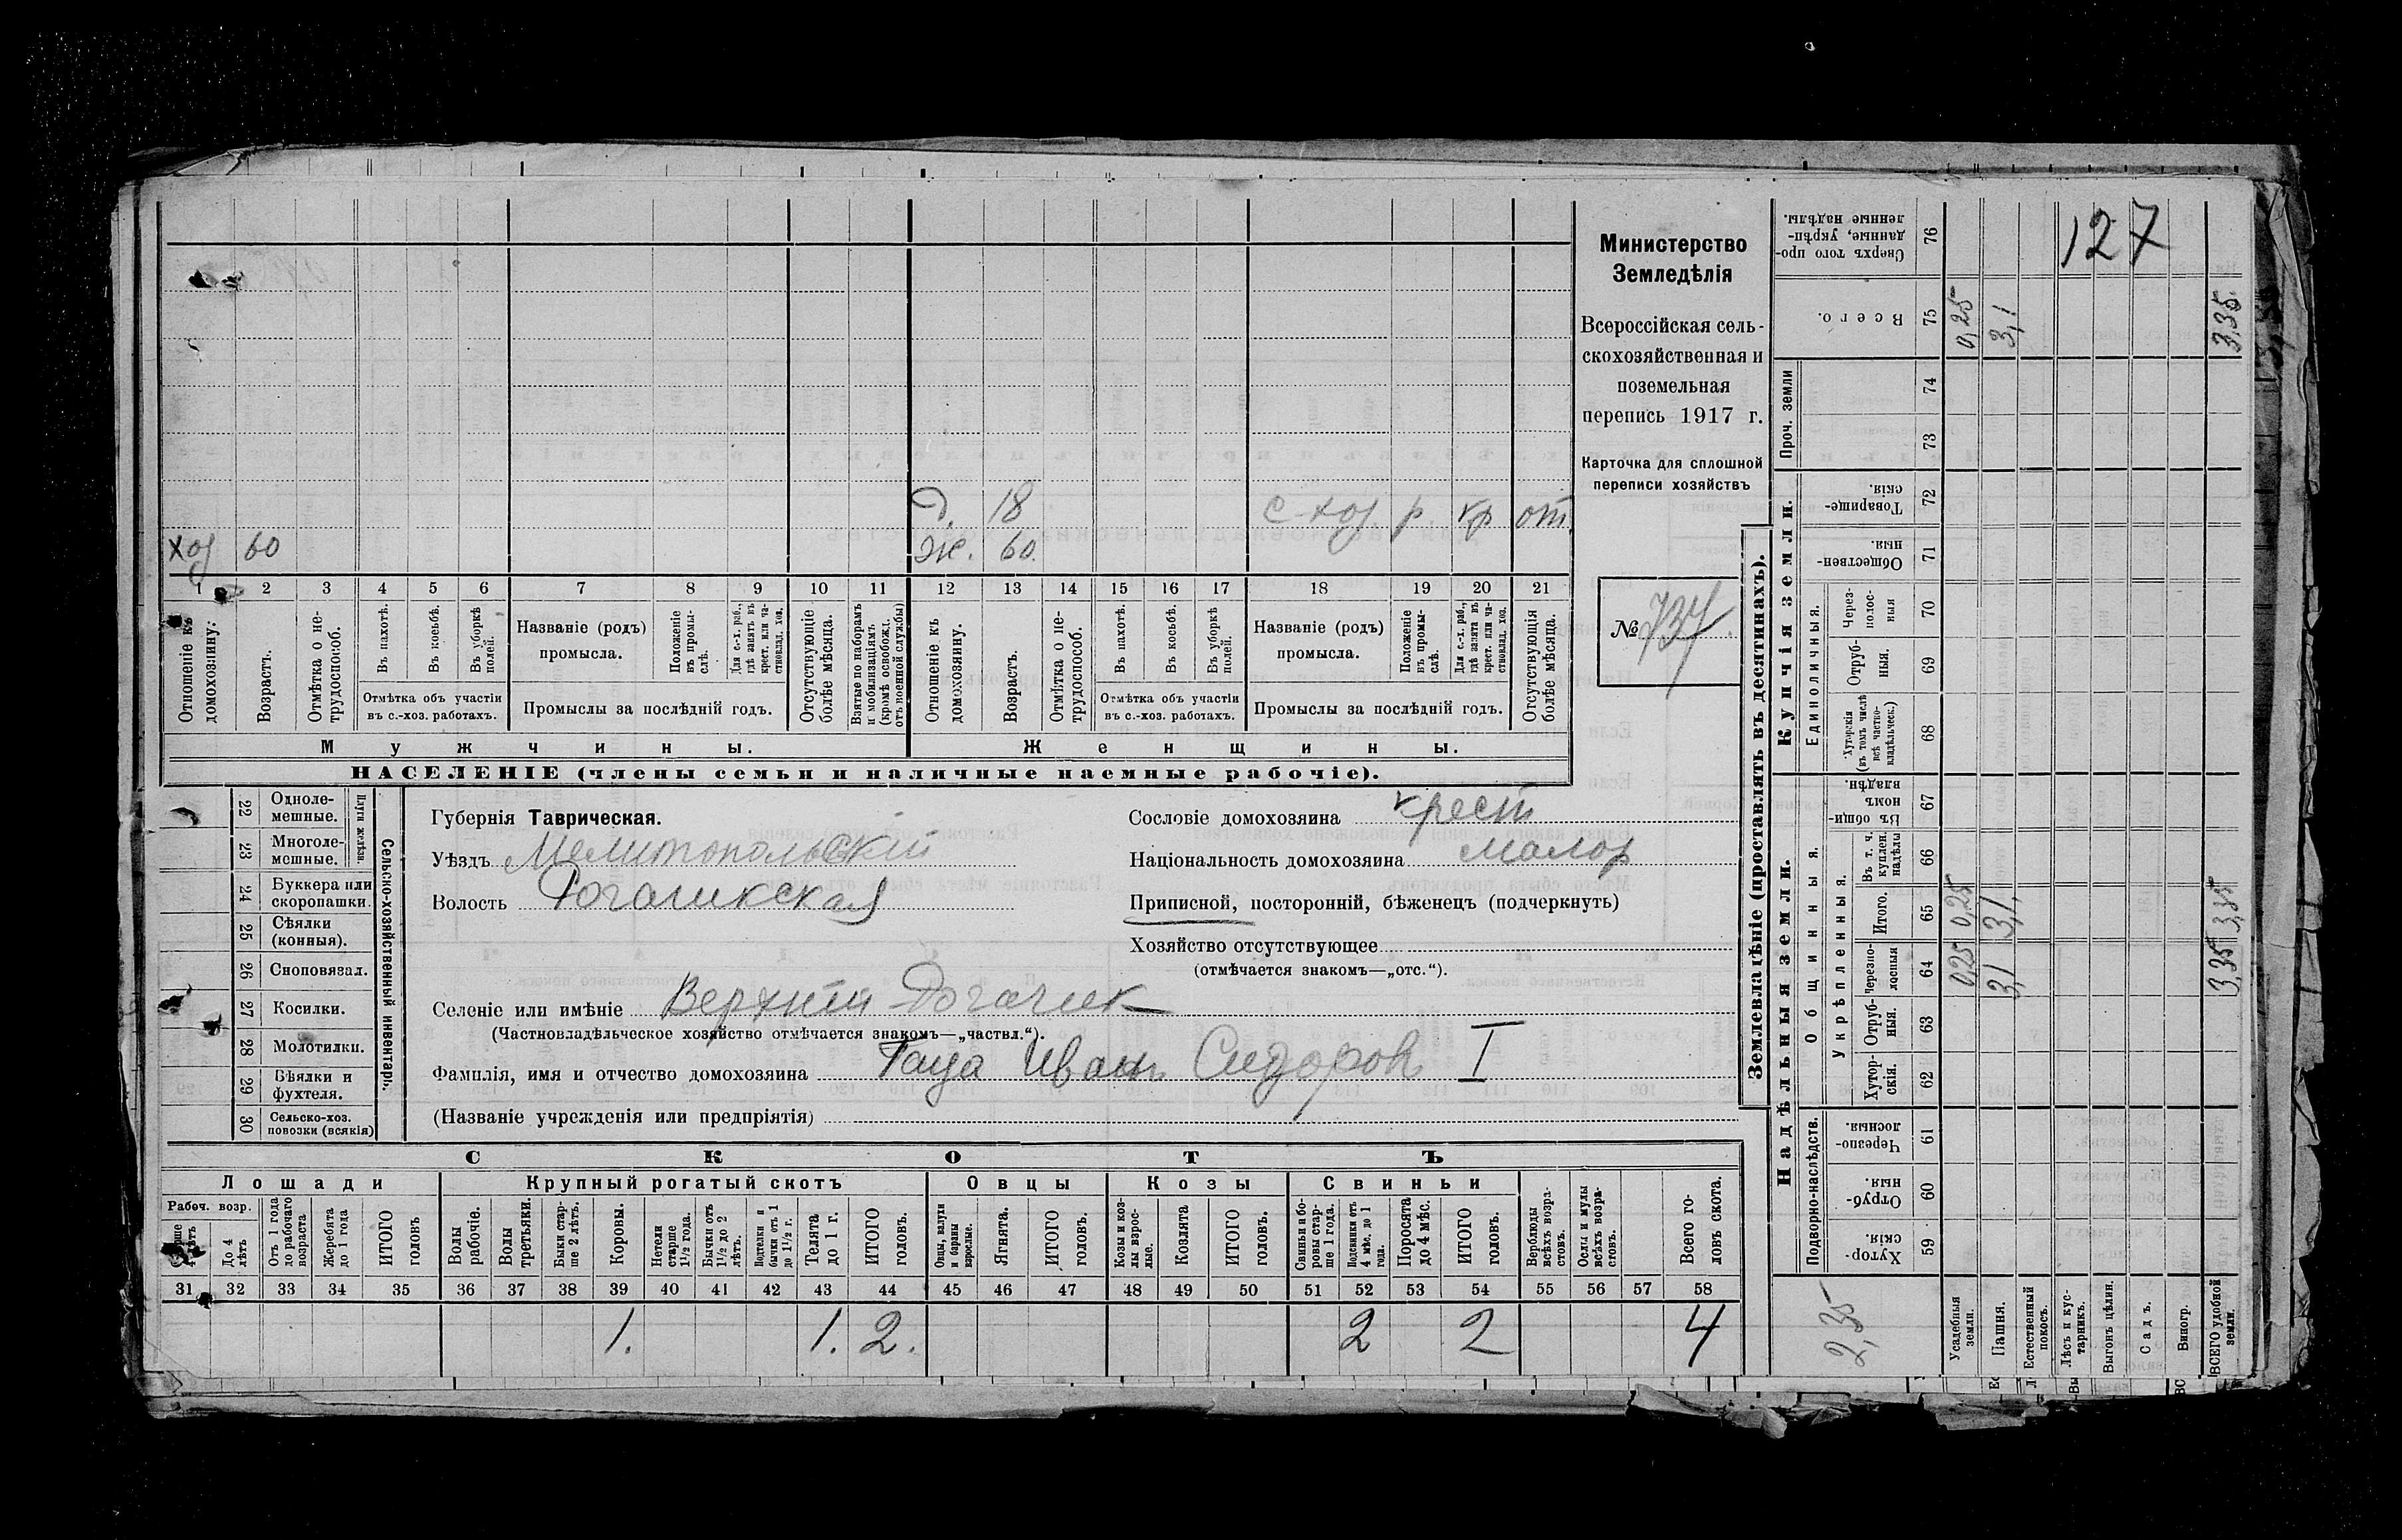 127
Министерство
Земледѣлія
Всероссійская сель-
скохозяйственная и
поземельная
перепись 1917 г.
Карточка для сплошной
переписи хозяйствъ
№ 737.
Д. 18 с-хоз. р. кр от
хоз 60 Ж. 60.
1 2 3 4 5 6 7 8 9 10 11 12 13 14 15 16 17 18 19 20 21
Отношеніе къ домохозяину.
Возрастъ.
Отмѣтка о не-трудоспособ.
Въ пахотѣ.
Въ косьбѣ.
Въ уборкѣ полей.
Отмѣтка объ участіи
въ с.-хоз. работахъ.
Названіе (родъ)
промысла.
Положеніе въ промы-слѣ.
Для с.-х. раб., гдѣ занятъ въ крест. или ча-стновлад. хоз.
Промыслы за послѣдній годъ.
Отсутствующіе болѣе мѣсяца.
Взятые по наборамъ и мобилизаціямъ (кромѣ освобожд. отъ военной службы)
Отношеніе къ домохозяину.
Возрастъ.
Отмѣтка о не-трудоспособ.
Въ пахотѣ.
Въ косьбѣ.
Въ уборкѣ полей.
Отмѣтка объ участіи
въ с.-хоз. работахъ.
Названіе (родъ)
промысла.
Положеніе въ промы-слѣ.
Для с.-х. раб., гдѣ занята въ крест. или ча-стновлад. хоз.
Промыслы за послѣдній годъ.
Отсутствующія болѣе мѣсяца.
Мужчины. Женщины.
НАСЕЛЕНІЕ (члены семьи и наличные наемные рабочіе).
Сельско-хозяйственный инвентарь.
Плуги желѣзн.
22 Одноле-мешные.
23 Многоле-мешные.
24 Буккера или скоропашки.
25 Сѣялки (конныя).
26 Сноповязал.
27 Косилки.
28 Молотилки.
29 Вѣялки и фухтеля.
30 Сельско-хоз. повозки (всякія)
Губернія Таврическая.
Уѣздъ Мелитопольскій
Волость Рогачикская
Сословіе домохозяина крест
Національность домохозяина малор
Приписной, посторонній, бѣженецъ (подчеркнуть)
Хозяйство отсутствующее
(отмѣчается знакомъ—„отс.“).
Селеніе или имѣніе Верхній Рогачик
(Частновладѣльческое хозяйство отмѣчается знакомъ—„частвл.“).
Фамилія, имя и отчество домохозяина Гаца Иванъ Сидоровъ I
(Названіе учрежденія или предпріятія)
СКОТЪ
Лошади Крупный рогатый скотъ Овцы Козы Свиньи
Рабоч. возр.
До 4 лѣтъ
Отъ 1 года до рабочаго возраста
Жеребята до 1 года
ИТОГО головъ
Волы рабочіе.
Волы третьяки.
Быки стар-ше 2 лѣтъ.
Коровы.
Нетели старше 1½ года.
Бычки отъ 1½ до 2 лѣтъ.
Подтелки и бычки отъ 1 до 1½ г.
Телята до 1 г.
ИТОГО головъ.
Овцы, валухи и бараны взрослые.
Ягнята.
ИТОГО головъ.
Козы и коз-лы взрос-лые.
Козлята
ИТОГО головъ.
Свиньи и бо-ровы стар-ше 1 года.
Подсвинки отъ 4 мѣс. до 1 года.
Поросята до 4 мѣс.
ИТОГО головъ.
Верблюды всѣхъ возра-стовъ.
Ослы и мулы всѣхъ возра-стовъ.
Всего го-ловъ скота.
31 32 33 34 35 36 37 38 39 40 41 42 43 44 45 46 47 48 49 50 51 52 53 54 55 56 57 58
1. 1. 2. 2 2 4
Землевладѣніе (проставлять въ десятинахъ).
Купчія земли.
Надѣльныя земли.
Сверхъ того про-данные, укрѣп-ленные надѣлы. 76
Всего. 75 0,25 3,1 3,35
Проч. земли 74 73
Товарище-скія. 72
Обществен-ныя. 71
Единоличныя.
Через-полос-ныя 70
Отруб-ныя. 69
Хуторскія (въ томъ числѣ всѣ частно-владѣльческ.) 68
Общинныя.
Въ общин-номъ владѣн. 67
Укрѣпленныя.
Въ т. ч. куплен. надѣлы 66
Итого. 65 0,25 3,1 3,35
Черезпо-лосныя 64 0,25 3,1 3,35
Отруб-ныя. 63
Хутор-скія. 62
Подворно-наслѣдств.
Черезпо-лосныя. 61
Отруб-ныя. 60
Хутор-скія. 59
2,35
Усадебныя земли.
Пашня.
Естественный покосъ.
Лѣсъ и кус-тарникъ.
Выгонъ цѣлин.
Садъ.
Виногр.
ВСЕГО удобной земли.